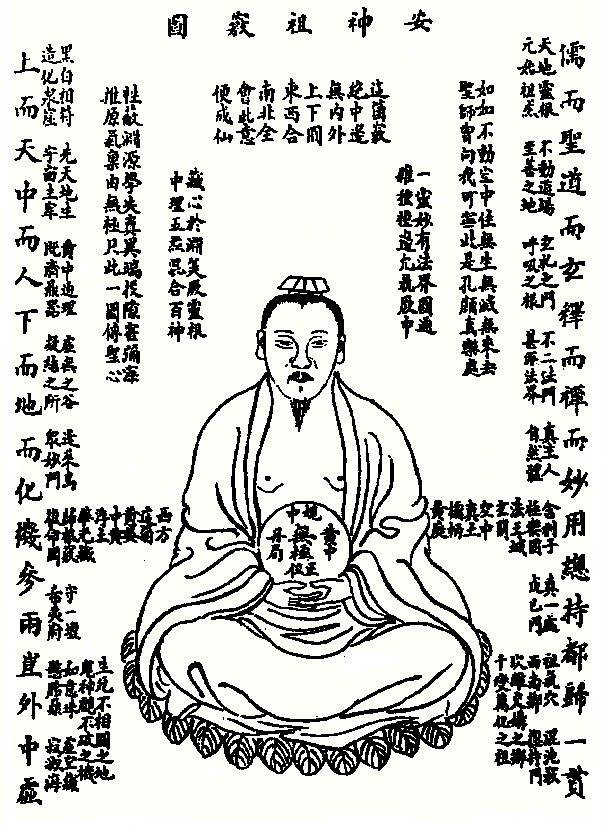 安神祖竅圖
儒而聖道而玄釋而禪而妙用總持都歸一貫
天地靈根 不動道場 玄牝之門 不二法門 真主人
元始祖炁 至善之地 呼吸之根 甚深法界 自然體
舍利子 真一處 祖氣穴 混沌竅
極樂國 戊己門 西南鄉 總持門
法王城
玄關
空中
真土
黃庭
坎離交媾之鄉
千變萬化之祖
如如不動空中住無生無滅無來去
聖師曾向我叮嚀此是孔顏真樂處
一靈妙有法界圓通
離種種邊允執厥中
這箇竅
絕中邊
無內外
上下圓
東西合
南北全
會此意
便成仙
藏心於淵美厥靈根
中理五炁混合百神
學失真異端投隙害彌深
推原氣稟由無極只此一圖傳聖心
規中
黃中
無極
正位
西方
這箇
黃婆
中黃
淨土
生死不相關之地
鬼神覷不破之機
黑白相符 先天地生 黃中通理 虛無之谷 蓬萊島
造化泉窟 宇宙主宰 既濟鼎器 凝結之所 眾妙門
歸根竅 守一壇 如意珠 虛空藏
復命關 希夷府 懸胎鼎 寂滅海
上而天中而人下而地而化機參兩直外中虛